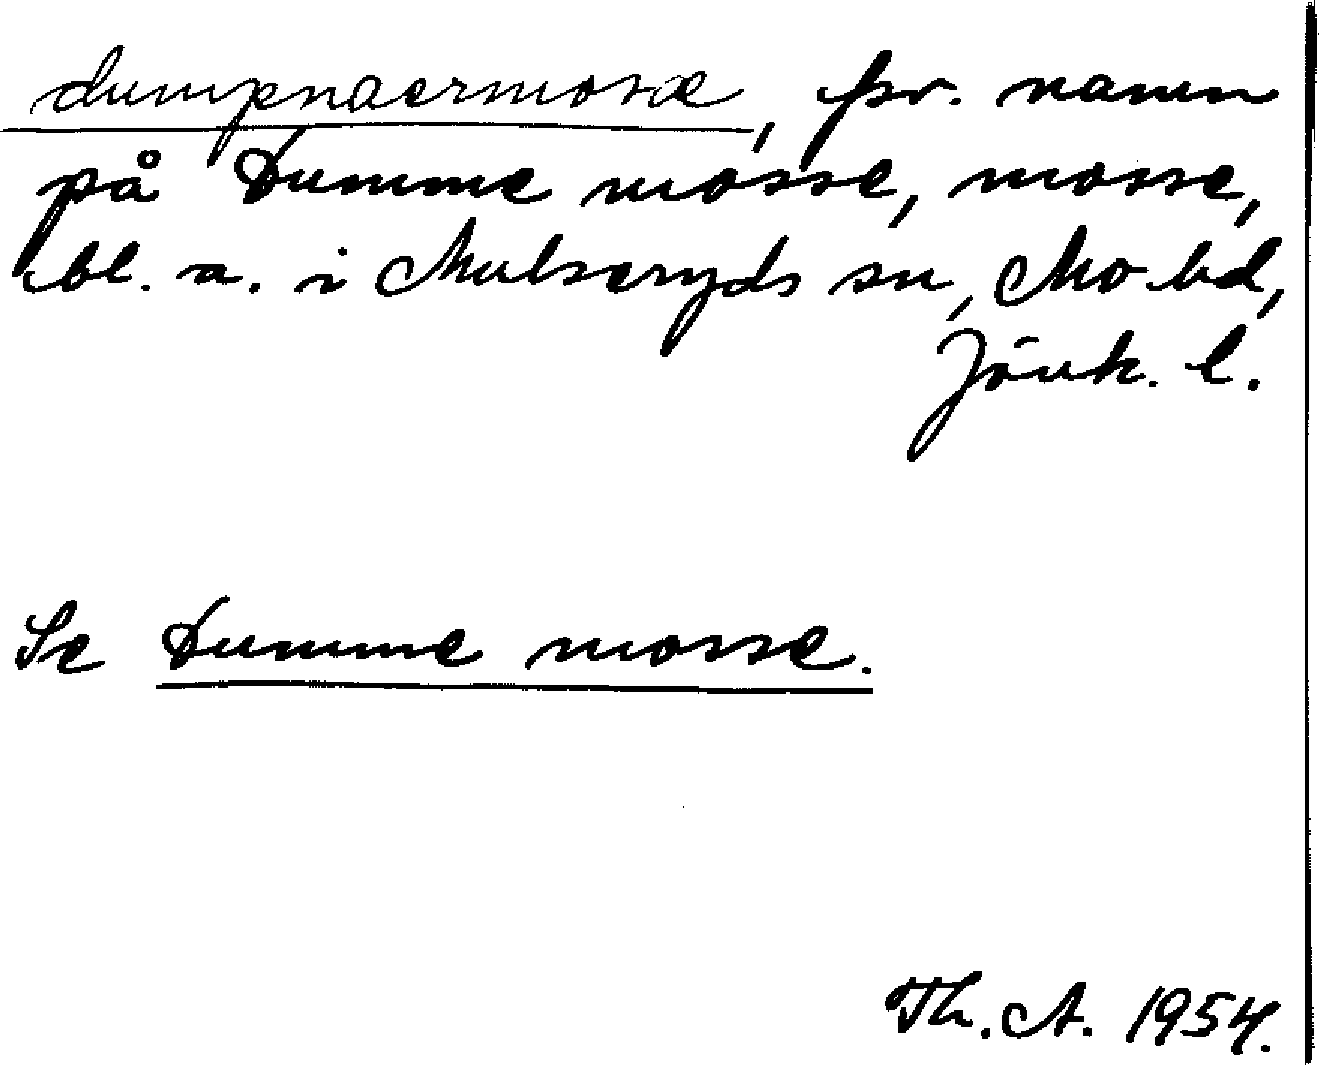 dumpnaermosæ, fsv. namn
på Dumme mosse, mosse,
bl. a. i Mulseryds sn, Mo hd,
Jönk. l.
Se Dumme mosse.
Th. A. 1954.